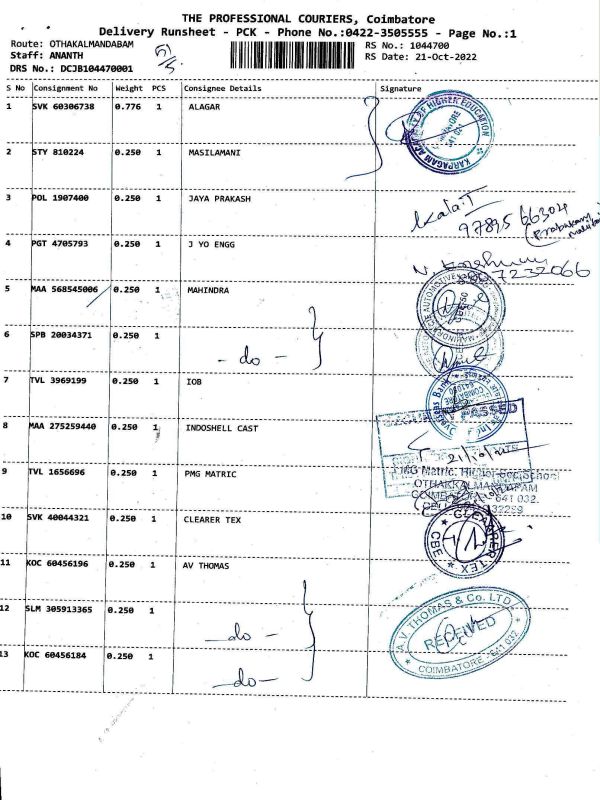 THE PROFESSIONAL COURIERS, Coimbatore
Delivery Runsheet - PCK - Phone No.:0422-3505555 - Page No.:1
Route: OTHAKALMANDABAM
Staff: ANANTH
DRS No.: DCJB104470001
RS No.: 1044700
RS Date: 21-Oct-2022
S No Consignment No Weight PCS Consignee Details Signature
1 SVK 60306738 0.776 1 ALAGAR
KARPAGAM ACADEMY OF HIGHER EDUCATION
COIMBATORE
641 021
2 STY 810224 0.250 1 MASILAMANI
3 POL 1907400 0.250 1 JAYA PRAKASH
Kala.T
97895 66304
4 PGT 4705793 0.250 1 J YO ENGG
5 MAA 568545006 0.250 1 MAHINDRA
6 SPB 20034371 0.250 1
- do -
7 TVL 3969199 0.250 1 IOB
8 MAA 275259440 0.250 1 INDOSHELL CAST
PASSED
21/10/22
9 TVL 1656696 0.250 1 PMG MATRIC
PMG Matric. Higher Sec. School
OTHAKKALMANDAPAM
COIMBATORE - 641 032.
10 SVK 40044321 0.250 1 CLEARER TEX
CLEARER TEX
CBE
11 KOC 60456196 0.250 1 AV THOMAS
12 SLM 305913365 0.250 1
- do -
A.V. THOMAS & Co. LTD
RECEIVED
COIMBATORE - 641 032
13 KOC 60456184 0.250 1
- do -